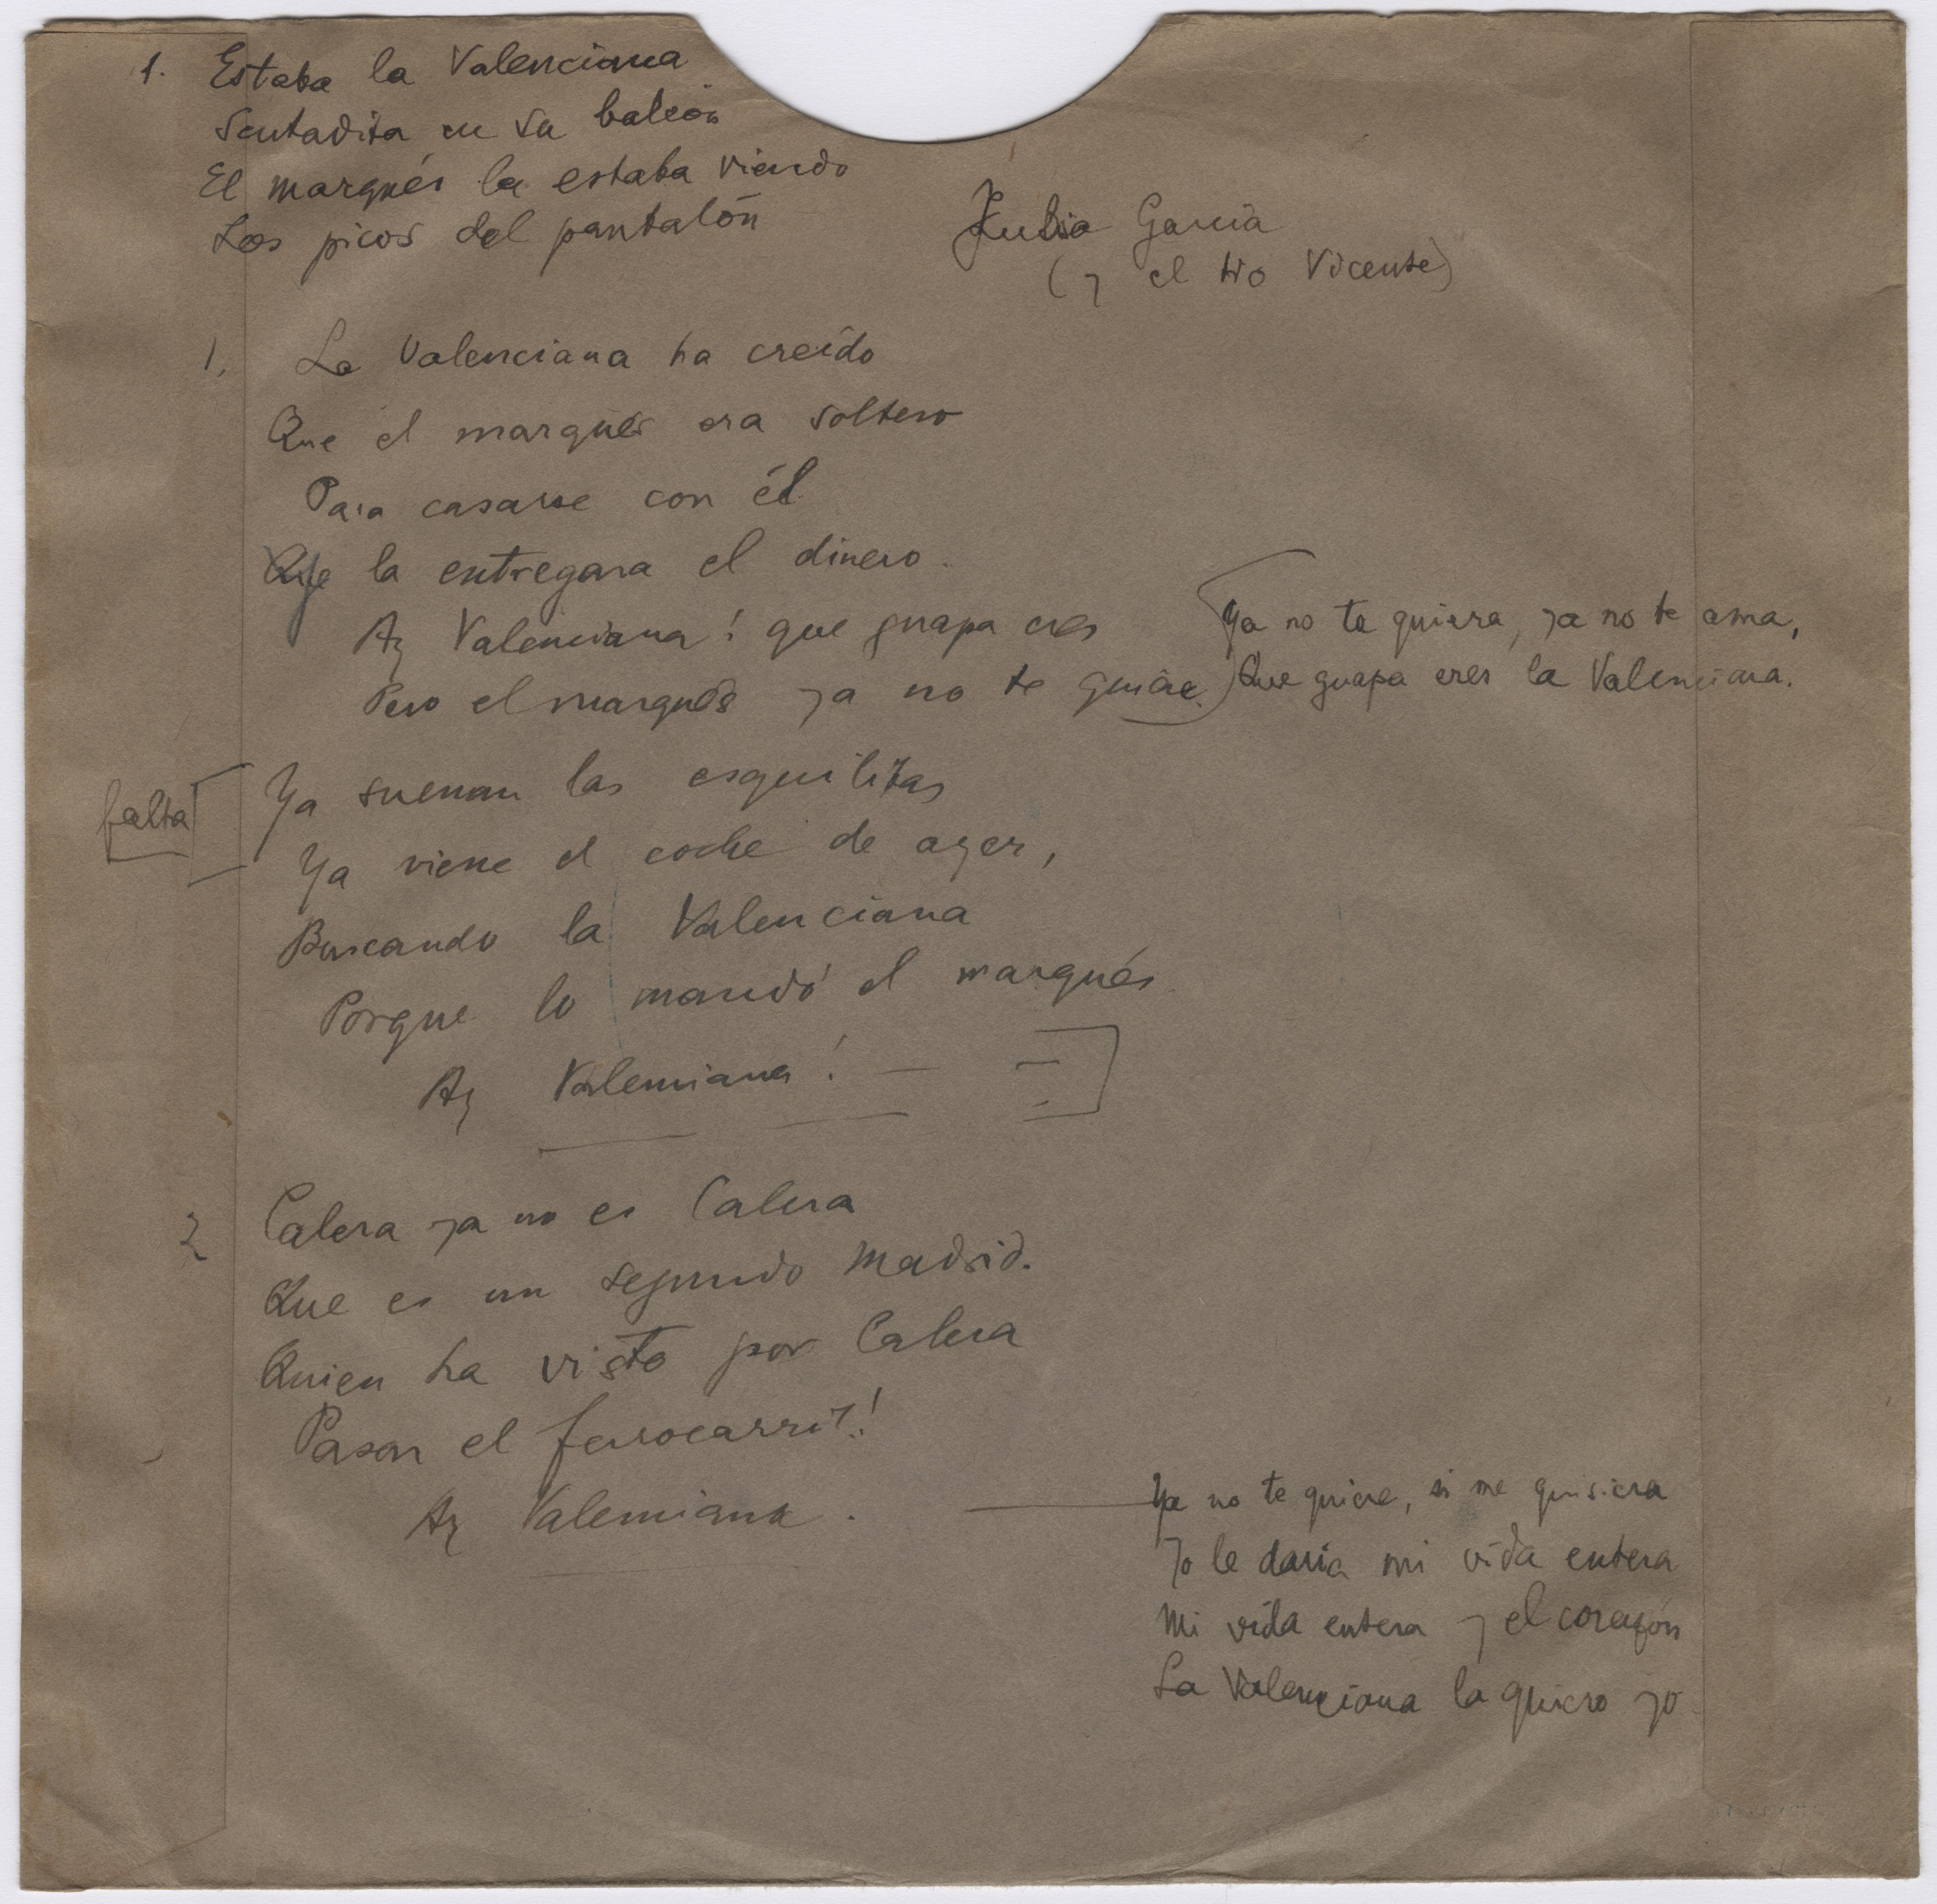 1. Estaba la Valenciana
Sentadita en su balcón
El marqués la estaba viendo
Los picos del pantalón
Julia García
(y el tio Vicente)
1. La Valenciana ha creído
Que el marqués era soltero
Para casarse con él
Que la entregara el dinero.
Ay Valenciana! que guapa eres
Pero el marqués ya no te quiere.
Ya no te quiera, ya no te ama,
Que guapa eres la Valenciana.
falta
Ya suenan las esquilitas
Ya viene el coche de ayer,
Buscando la Valenciana
Porque lo mandó el marqués.
Ay Valenciana! —
2 Calera ya no es Calera
Que es un segundo Madrid.
Quien ha visto por Calera
Pasar el ferrocarril!
Ay Valenciana. —
Ya no te quiere, si me quisiera
Yo le daría mi vida entera
Mi vida entera y el corazón
La Valenciana la quiero yo